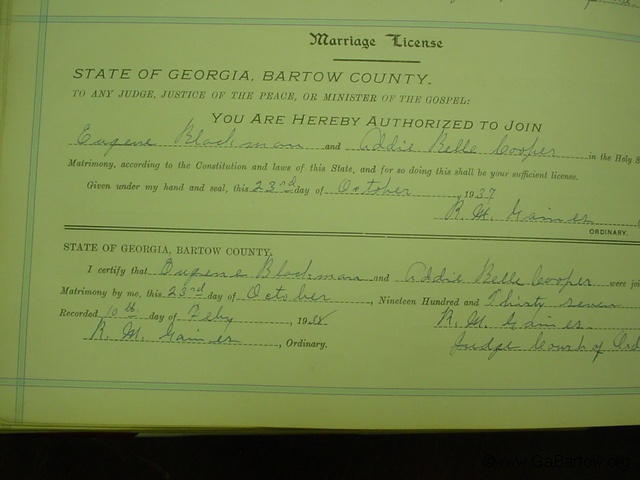 Marriage License
STATE OF GEORGIA, BARTOW COUNTY.
TO ANY JUDGE, JUSTICE OF THE PEACE, OR MINISTER OF THE GOSPEL:
YOU ARE HEREBY AUTHORIZED TO JOIN
Eugene Blackman and Addie Belle Cooper in the Holy S
Matrimony, according to the Constitution and laws of this State, and for so doing this shall be your sufficient license.
Given under my hand and seal, this 23rd day of October 1937
R. M. Gaines
ORDINARY.
STATE OF GEORGIA, BARTOW COUNTY.
I certify that Eugene Blackman and Addie Belle Cooper were joi
Matrimony by me, this 23rd day of October, Nineteen Hundred and Thirty seven
Recorded 10th day of Feby, 19 R. M. Gaines
R. M. Gaines, Ordinary. Judge Court of Ord
www.GaBartow.org